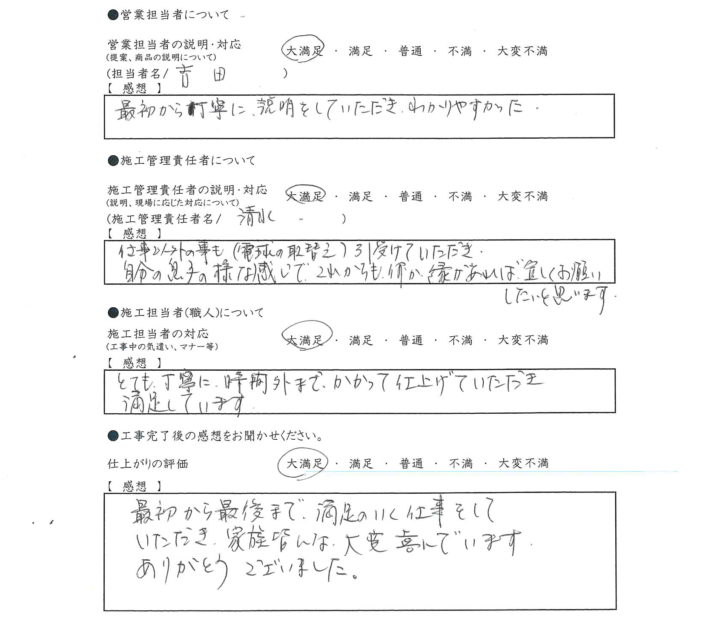 ●営業担当者について
営業担当者の説明・対応　大満足 ・ 満足 ・ 普通 ・ 不満 ・ 大変不満
(提案、商品の説明について)
(担当者名/ 吉田 )
【 感想 】
最初から丁寧に、説明をしていただき、わかりやすかった.
●施工管理責任者について
施工管理責任者の説明・対応　大満足 ・ 満足 ・ 普通 ・ 不満 ・ 大変不満
(説明、現場に応じた対応について)
(施工管理責任者名/ 清水 )
【 感想 】
仕事以外の事も(電球の取替え)引受けていただき、
自分の息子の様な感じで、これからも、何か、縁があれば、宜しくお願い
したいと思います.
●施工担当者(職人)について
施工担当者の対応　大満足 ・ 満足 ・ 普通 ・ 不満 ・ 大変不満
(工事中の気遣い、マナー等)
【 感想 】
とても、丁寧に、時間外まで、かかって仕上げていただき
満足しています.
●工事完了後の感想をお聞かせください。
仕上がりの評価　大満足 ・ 満足 ・ 普通 ・ 不満 ・ 大変不満
【 感想 】
最初から最後まで、満足のいく仕事をして
いただき、家族皆んな、大変喜んでいます.
ありがとうございました。